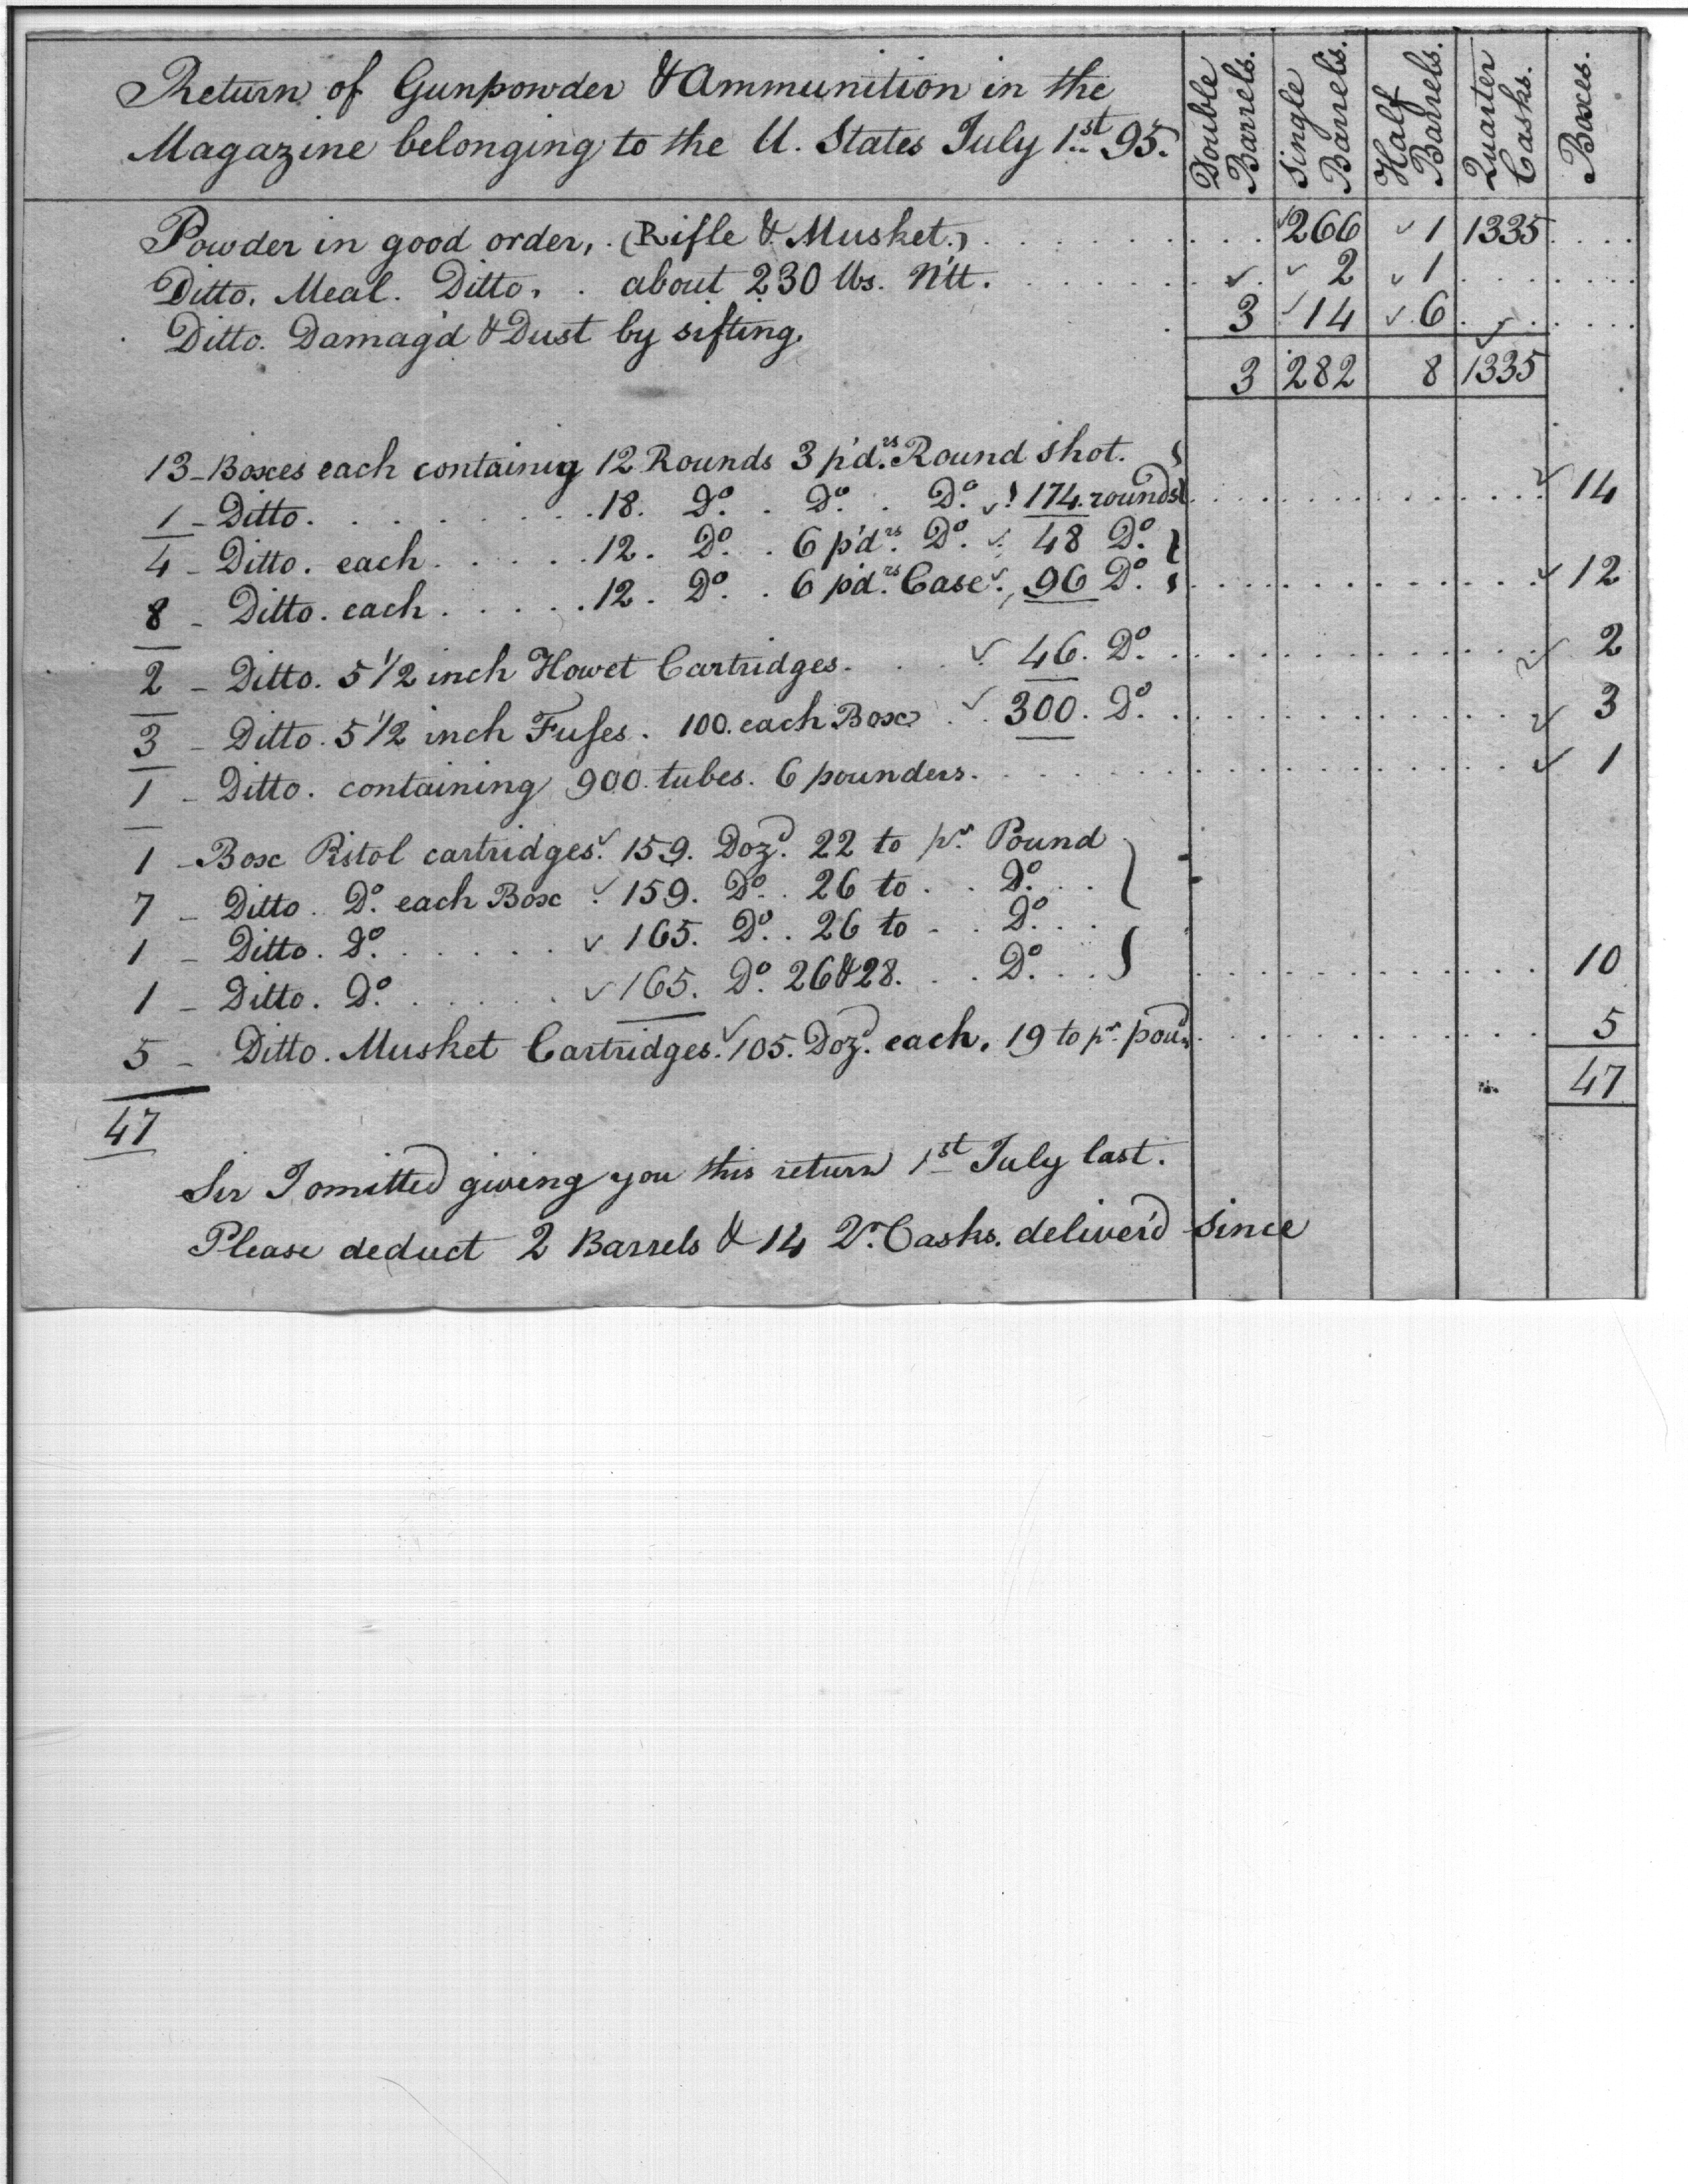 Return of Gunpowder & Ammunition in the
Magazine belonging to the U. States July 1st 95.
Double Barrels.
Single Barrels.
Half Barrels.
Quarter Casks.
Boxes.
Powder in good order, (Rifle & Musket.) 266 1 1335
Ditto. Meal. Ditto. about 230 lbs. N'tt. 2 1
Ditto. Damag'd & Dust by sifting. 3 14 6
3 282 8 1335
13 - Boxes each containig 12 Rounds 3 p'd.rs Round shot.
1 - Ditto. 18. Do. Do. Do. 174. rounds 14
4 - Ditto. each. 12. Do. 6 p'd.rs Do. 48 Do.
8 - Ditto. each. 12. Do. 6 p'd.rs Case. 96 Do. 12
2 - Ditto. 5 1/2 inch Howet Cartridges. 46. Do. 2
3 - Ditto. 5 1/2 inch Fuses. 100. each Box. 300. Do. 3
1 - Ditto. containing 900. tubes. 6 pounders. 1
1 - Box Pistol cartridges. 159. Doz. 22 to pr. Pound
7 - Ditto. Do. each Box 159. Do. 26 to Do.
1 - Ditto. Do. 165. Do. 26 to Do.
1 - Ditto. Do. 165. Do. 26 & 28. Do. 10
5 - Ditto. Musket Cartridges. 105. Doz. each. 19 to pr. pound 5
47 47
Sir I omitted giving you this return 1st July last.
Please deduct 2 Barrels & 14 Qr. Casks. deliver'd since